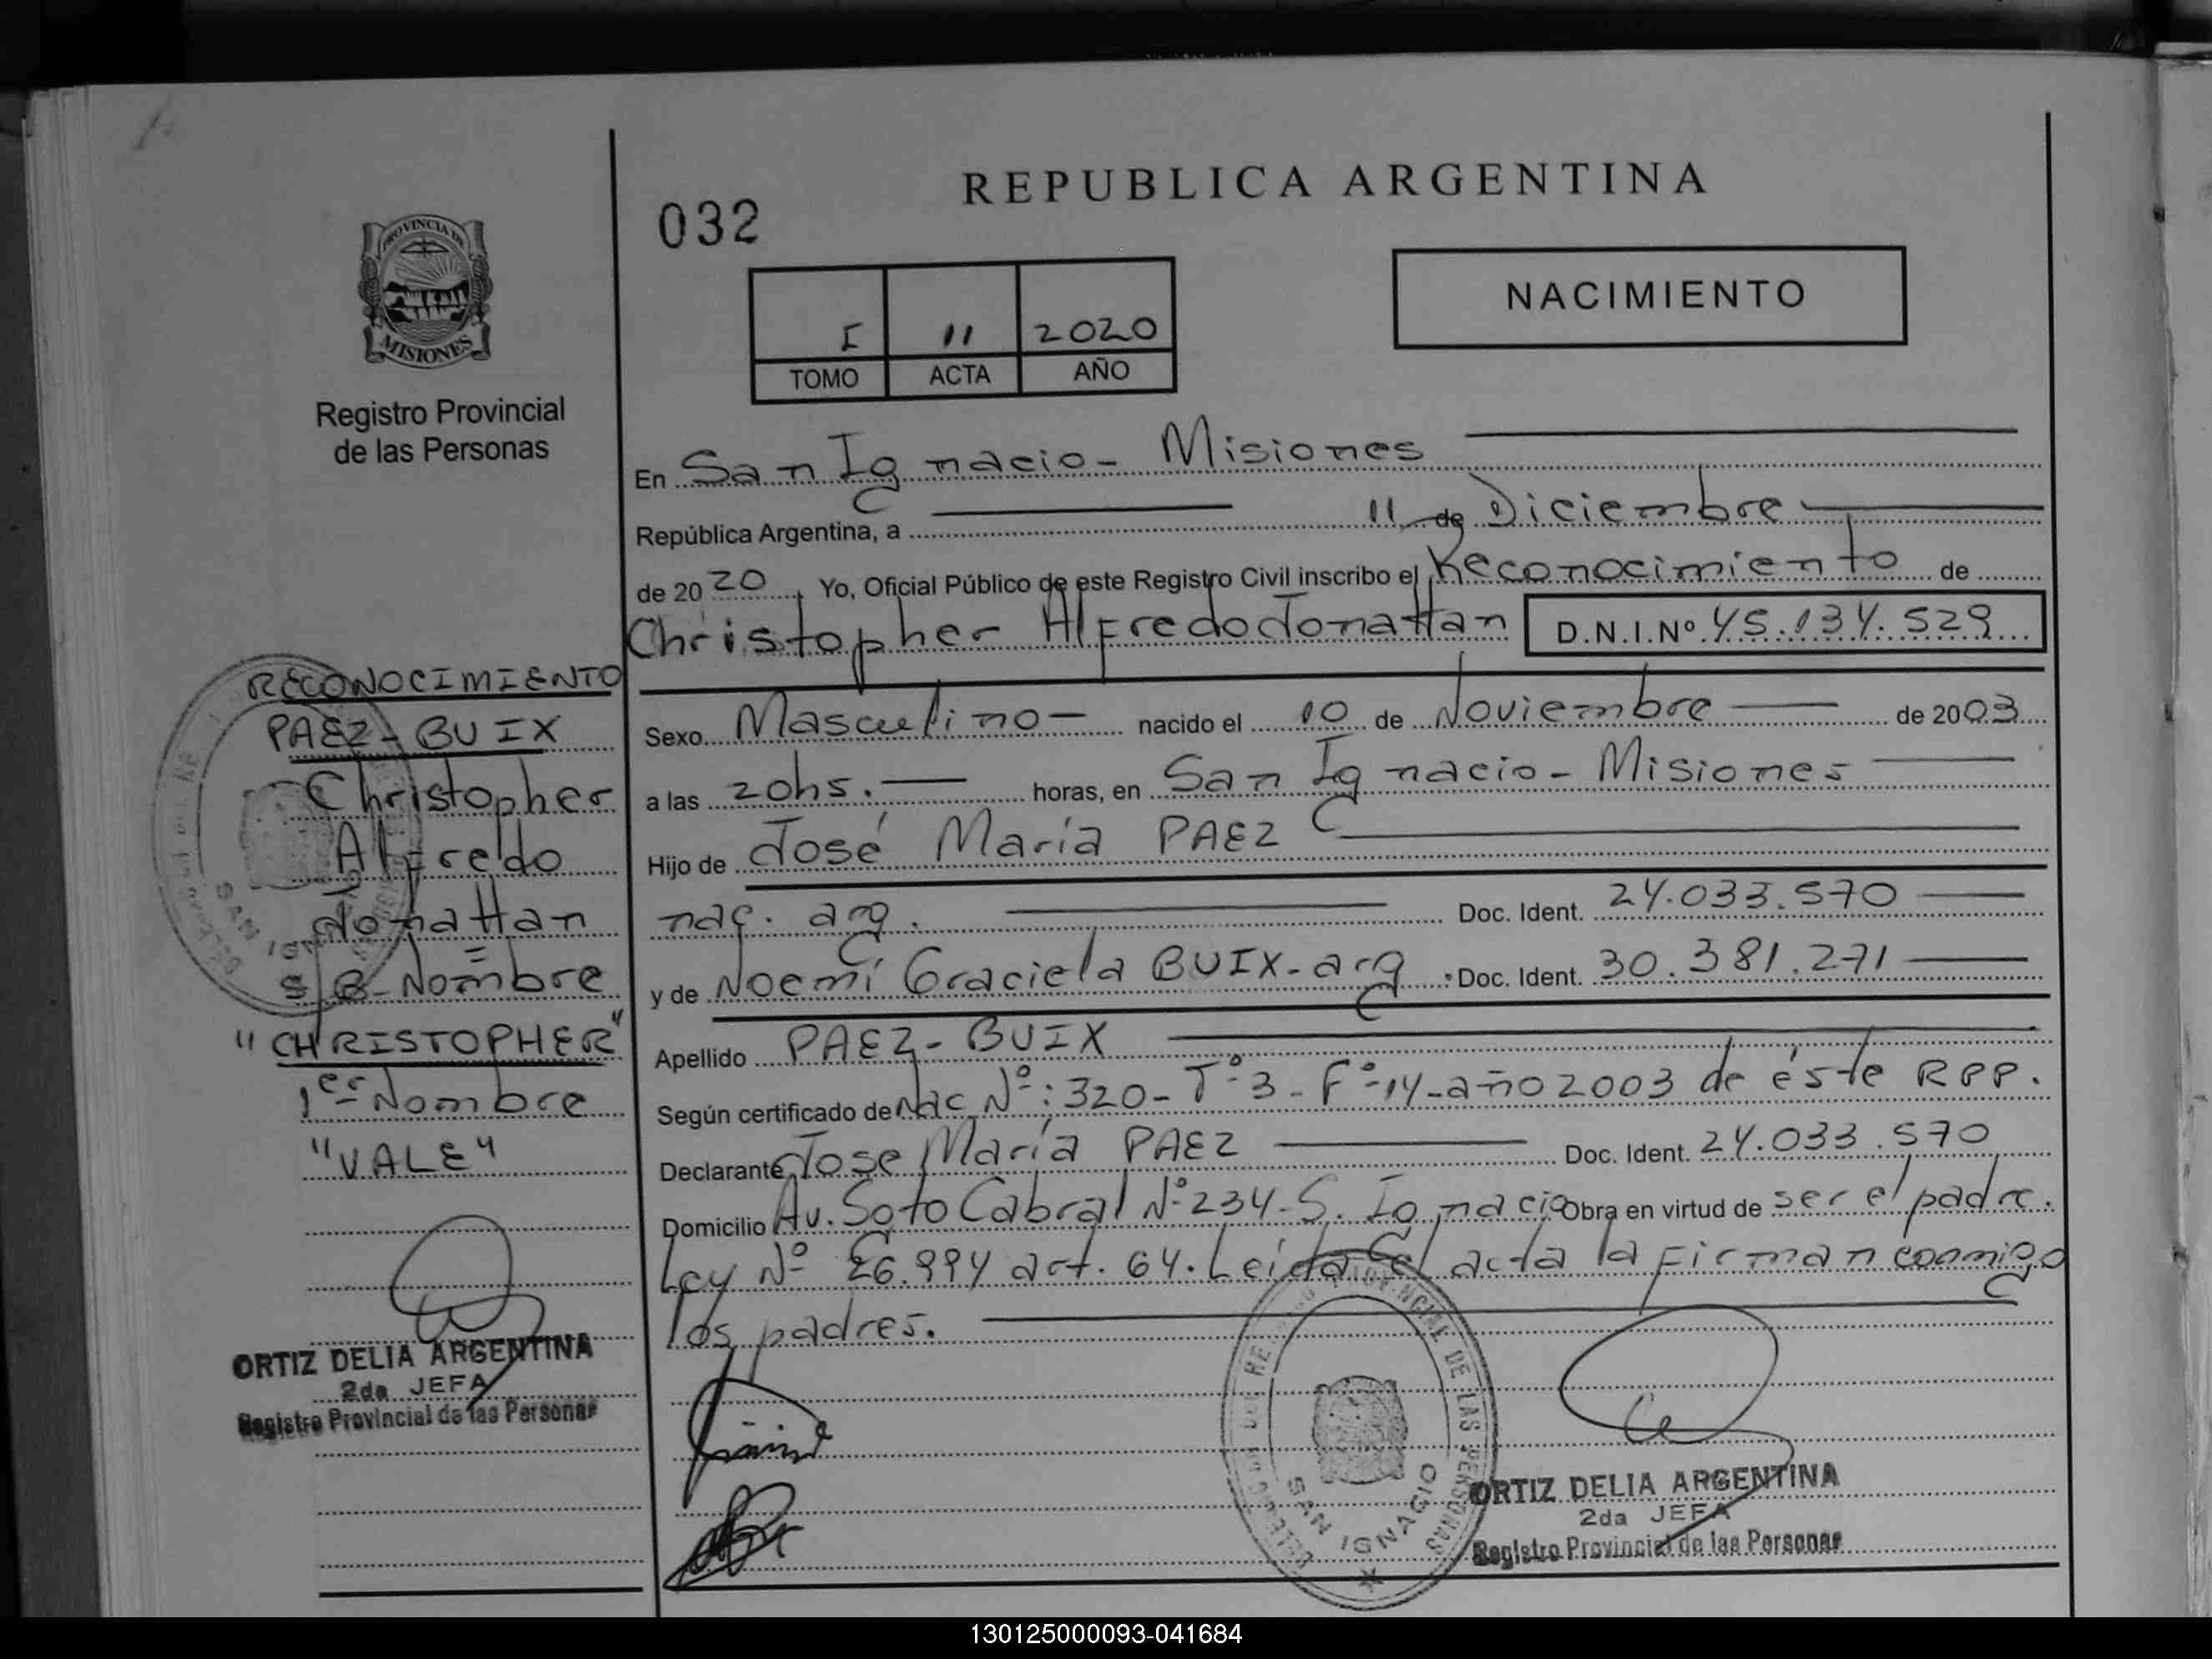 PROVINCIA DE
MISIONES
Registro Provincial
de las Personas
RECONOCIMIENTO
PAEZ-BUIX
Christopher
Alfredo
Jonattan
S/B-Nombre
"CHRISTOPHER"
1er Nombre
"VALE"
ORTIZ DELIA ARGENTINA
2da JEFA
Registro Provincial de las Personas
032
REPUBLICA ARGENTINA
I 11 2020
TOMO ACTA AÑO
NACIMIENTO
En San Ignacio - Misiones
República Argentina, a 11 de Diciembre
de 2020. Yo, Oficial Público de este Registro Civil inscribo el Reconocimiento de
Christopher Alfredo Jonattan D.N.I.Nº 45.134.529
Sexo Masculino - nacido el 10 de Noviembre de 2003
a las 20hs. horas, en San Ignacio - Misiones
Hijo de José María PAEZ
nac. arg. Doc. Ident. 24.033.570
y de Noemí Graciela BUIX - arg. Doc. Ident. 30.381.271
Apellido PAEZ - BUIX
Según certificado de Nac Nº: 320 - Tº 3 - Fº 14 - año 2003 de éste RPP.
Declarante Jose María PAEZ Doc. Ident. 24.033.570
Domicilio Av. Soto Cabral Nº 234 - S. Ignacio Obra en virtud de ser el padre.
Ley Nº 26.994 art. 64. Leída el acta la firman conmigo
los padres.
PROVINCIAL DE LAS PERSONAS
SAN IGNACIO
ORTIZ DELIA ARGENTINA
2da JEFA
Registro Provincial de las Personas
130125000093-041684